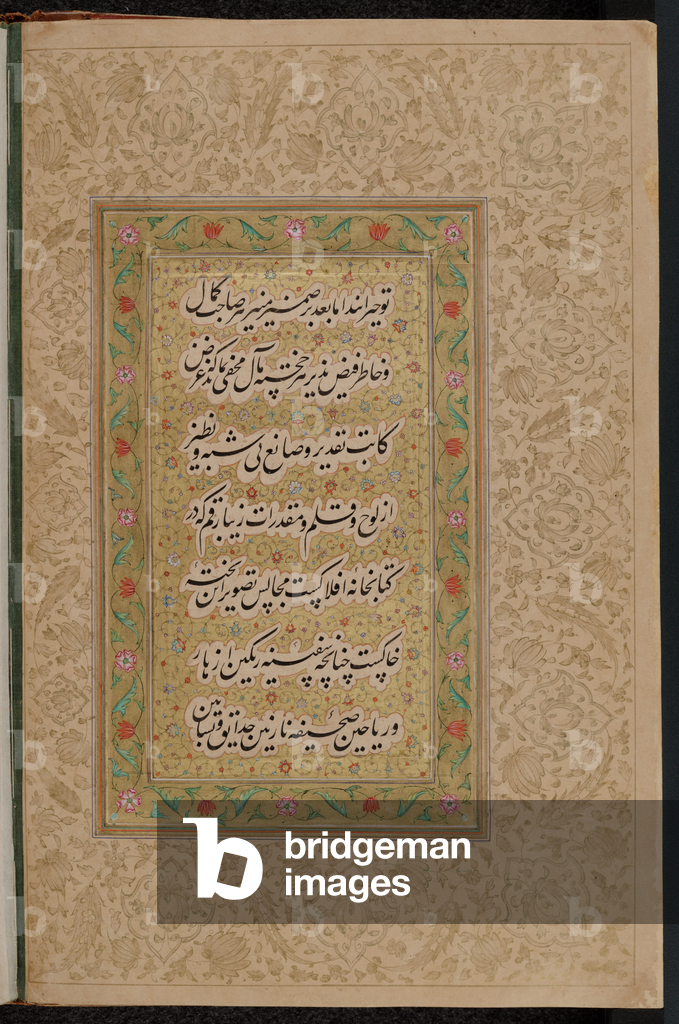 توحیراندامابعد بر ضمیر منیر هر صاحب کمال
و خاطر فیض پذیر هر خجسته مآل مخفی نماند که غرض
کاتب تقدیر و صانع بی شبه و نظیر
از لوح و قلم و مقدرات زیبا رقم که در
کتابخانه افلاکست مجالس تصویر این تخته
خاکست چنانچه سفینه رنگین ازهار
و ریاحین صحیفه نازنین حدایق و بساتین
b bridgeman
images